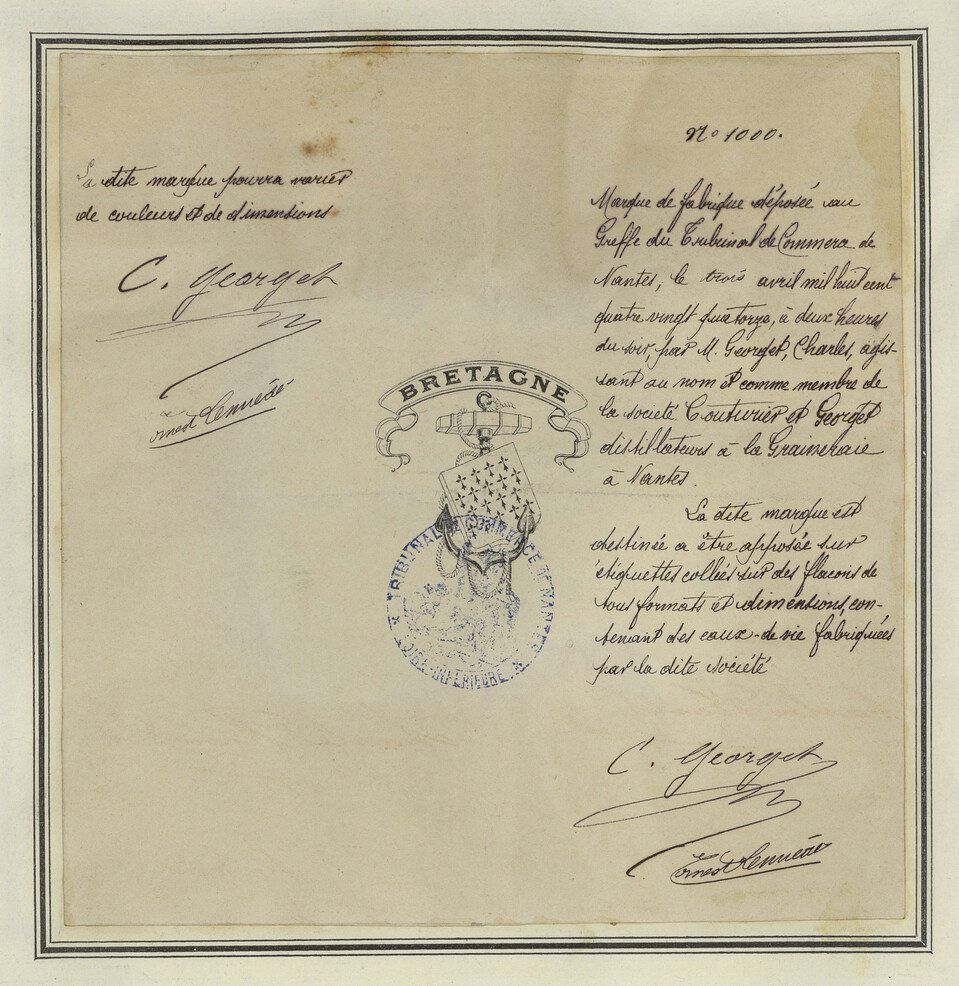 La dite marque pourra varier
de couleurs et de dimensions
C. Georget
Ernest Lenviédé
BRETAGNE
TRIBUNAL DE COMMERCE DE NANTES
LOIRE-INFÉRIEURE
No 1000.
Marque de fabrique déposée au
Greffe du Tribunal de Commerce de
Nantes, le trois avril mil huit cent
quatre vingt quatorze, à deux heures
du soir, par M. Georget, Charles, agis-
sant au nom et comme membre de
la société Couturier et Georget
distillateurs à la Graineraie
à Nantes.
La dite marque est
destinée a être apposée sur
étiquettes collées sur des flacons de
tous formats et dimensions, con-
tenant des eaux-de-vie fabriquées
par la dite société
C. Georget
Ernest